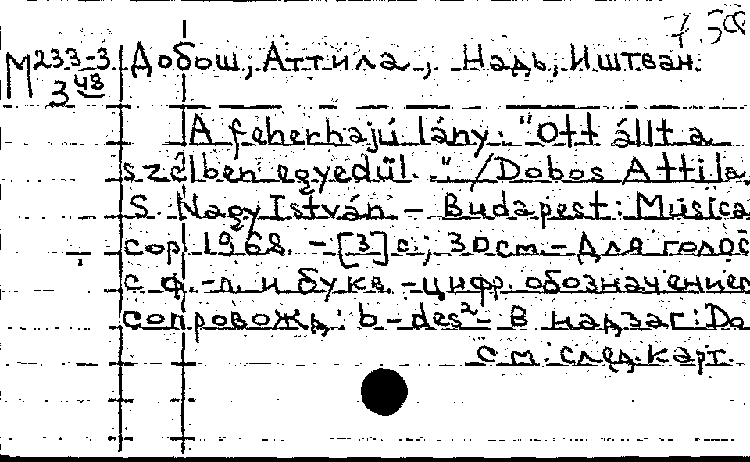 7.50
М 233-3 Добош, Аттила, Надь, Иштван.
3 48
A fehérhajú lány. "Ott állt a
szélben egyedül." / Dobos Attila,
S. Nagy István - Budapest: Musica
cop. 1968. - [3] с.; 30 см. - Для голос
с ф.-п. и букв.-цифр. обозначением
сопровожд: b-des² - В надзаг: Do
см. след. карт.